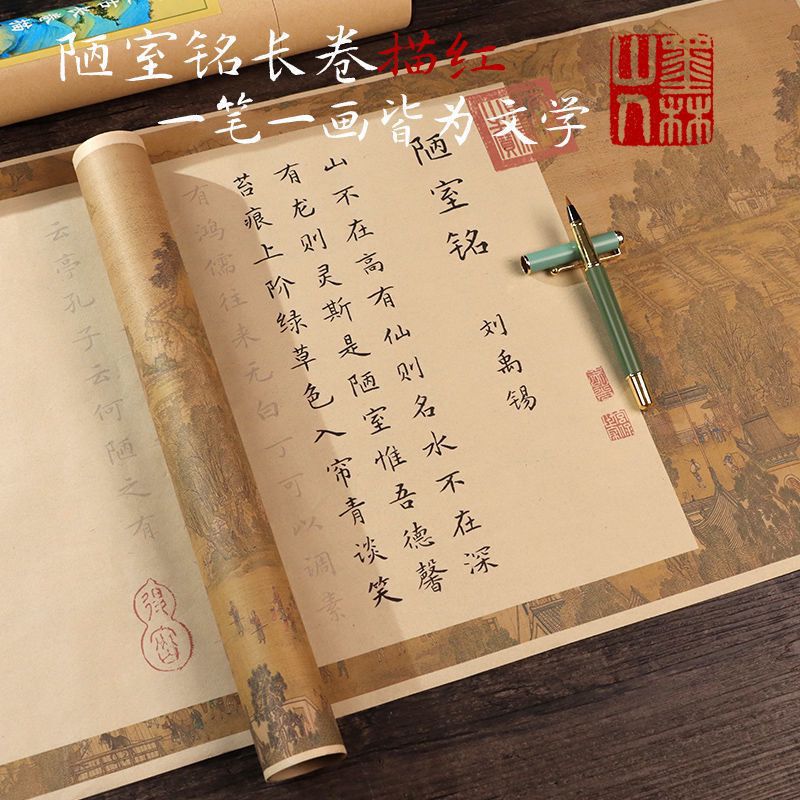 陋室铭长卷描红
一笔一画皆为文学
墨林
山人
陋室铭
刘禹锡
山不在高有仙则名水不在深
有龙则灵斯是陋室惟吾德馨
苔痕上阶绿草色入帘青谈笑
有鸿儒往来无白丁可以调素
云亭孔子云何陋之有